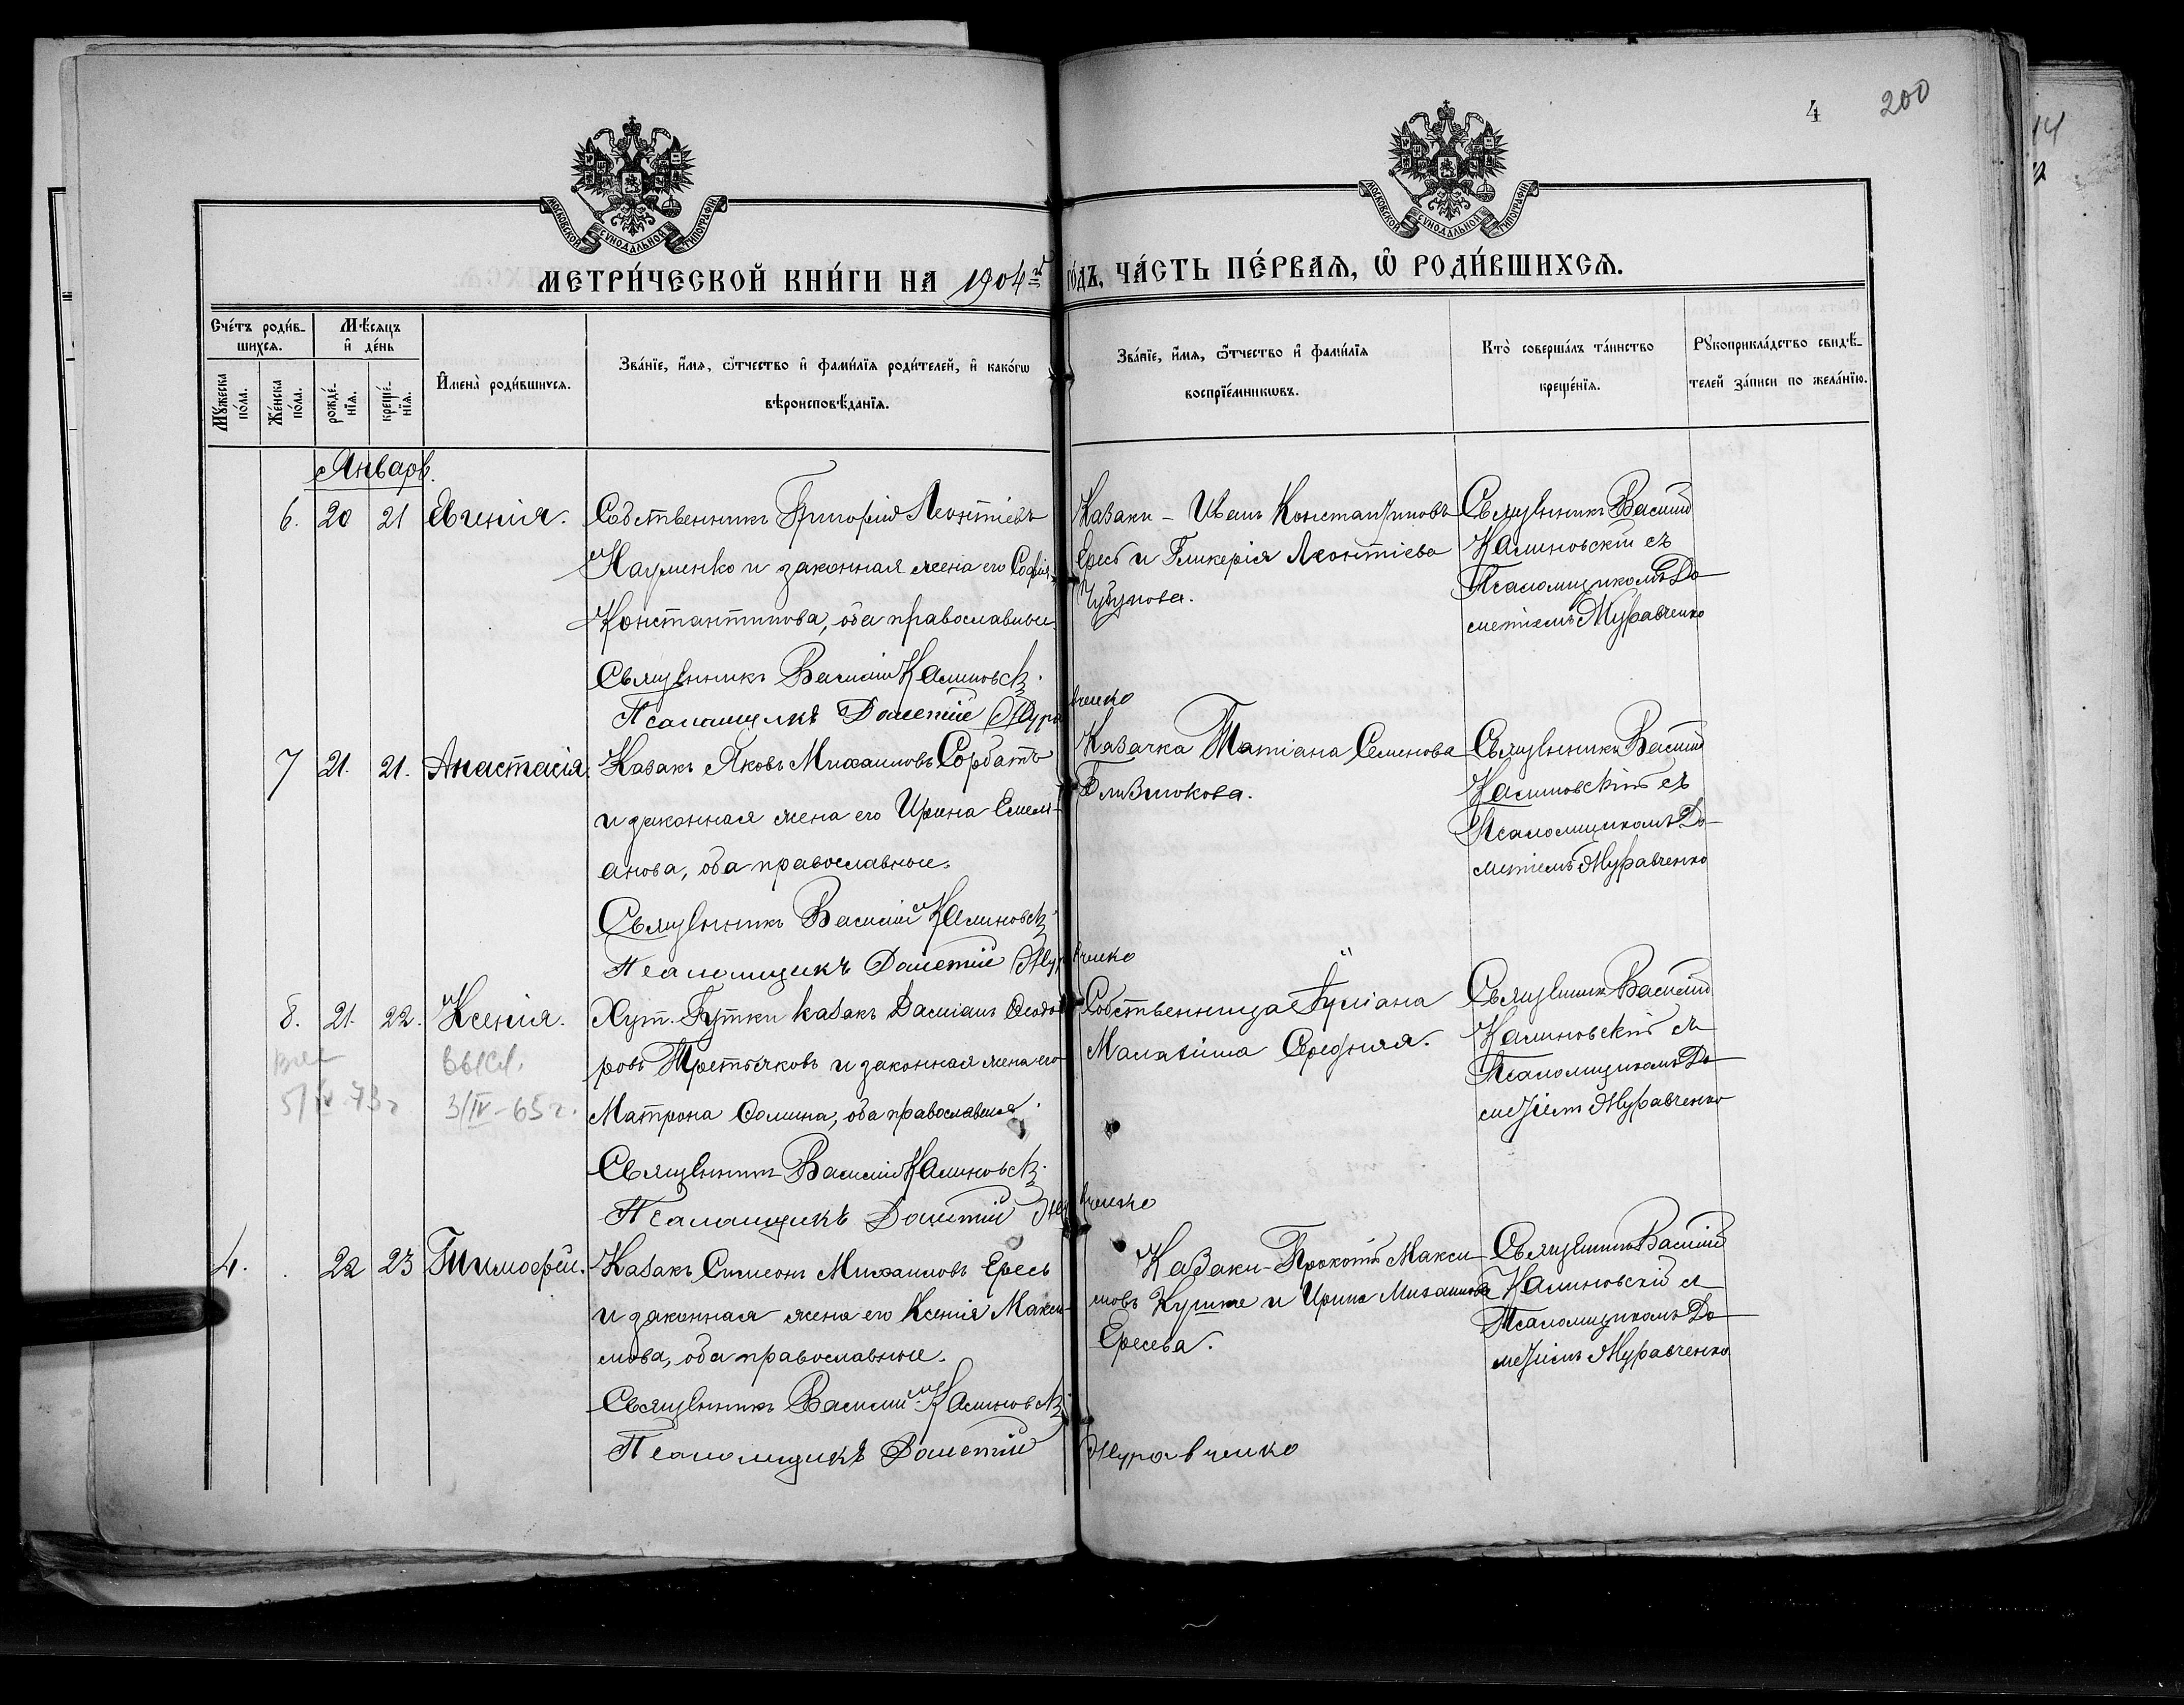 4
200
14
2
МОСКОВСКОЙ СУНОДАЛЬНОЙ ТИПОГРАФІИ
МОСКОВСКОЙ СУНОДАЛЬНОЙ ТИПОГРАФІИ
МЕТРИ́ЧЕСКОЙ КНИ́ГИ НА 1904й ГО́ДЪ, ЧА́СТЬ ПЕ́РВАЯ, Ѡ҆ РОДИ́ВШИХСѦ.
Счётъ роди́в-
шихсѧ.
Мѣ́сѧцъ
и҆ де́нь
Мꙋ́жеска
по́ла.
Же́нска
по́ла.
рожде́-
нїѧ.
креще́-
нїѧ.
И҆мена̀ роди́вшихсѧ.
Зва́нїе, и҆́мѧ, ѻ҆́тчество и҆ фами́лїѧ роди́телей, и҆ како́гѡ
вѣроисповѣ́данїѧ.
Зва́нїе, и҆́мѧ, ѻ҆́тчество и҆ фами́лїѧ
воспрїе́мникѡвъ.
Кто̀ соверша́лъ та́инство
креще́нїѧ.
Рꙋкоприкла́дство свидѣ́-
телей за́писи по жела́нїю.
Январь.
6. 20 21 Евгенія.
Собственникъ Григорій Леонтіевъ
Науменко и законная жена его Софія
Константинова, оба православные.
Священникъ Василій Калиновскій
Псаломщикъ Дометій Муравченко
Казаки - Иванъ Константиновъ
Ересь и Гликерія Леонтіева
Чубукова.
Священникъ Василій
Калиновскій съ
Псаломщикомъ До-
метіемъ Муравченко
7 21. 21. Анастасія.
Казакъ Яковъ Михаиловъ Горбатъ
и законная жена его Ирина Емелі-
анова, оба православные.
Священникъ Василій Калиновскій
Псаломщикъ Дометій Муравченко
Казачка Татіана Семенова
Близнюкова.
Священникъ Василій
Калиновскій съ
Псаломщикомъ До-
метіемъ Муравченко
8. 21. 22. Ксенія.
5/IV-73 г
высл.
3/IV-65 г.
Хут. Гутки казакъ Даміанъ Ѳеодо-
ровъ Третьяковъ и законная жена его
Матрона Ѳомина, оба православные.
Священникъ Василій Калиновскій
Псаломщикъ Дометій Муравченко
Собственница Іуліана
Малахіина Середняя.
Священникъ Василій
Калиновскій съ
Псаломщикомъ До-
метіемъ Муравченко
4. 22 23 Тимофей.
Казакъ Симеонъ Михаиловъ Ересь
и законная жена его Ксенія Макси-
мова, оба православные.
Священникъ Василій Калиновскій
Псаломщикъ Дометій Муравченко
Казаки - Прокопій Макси-
мовъ и Ирина Михаилова
Ересева.
Священникъ Василій
Калиновскій съ
Псаломщикомъ До-
метіемъ Муравченко